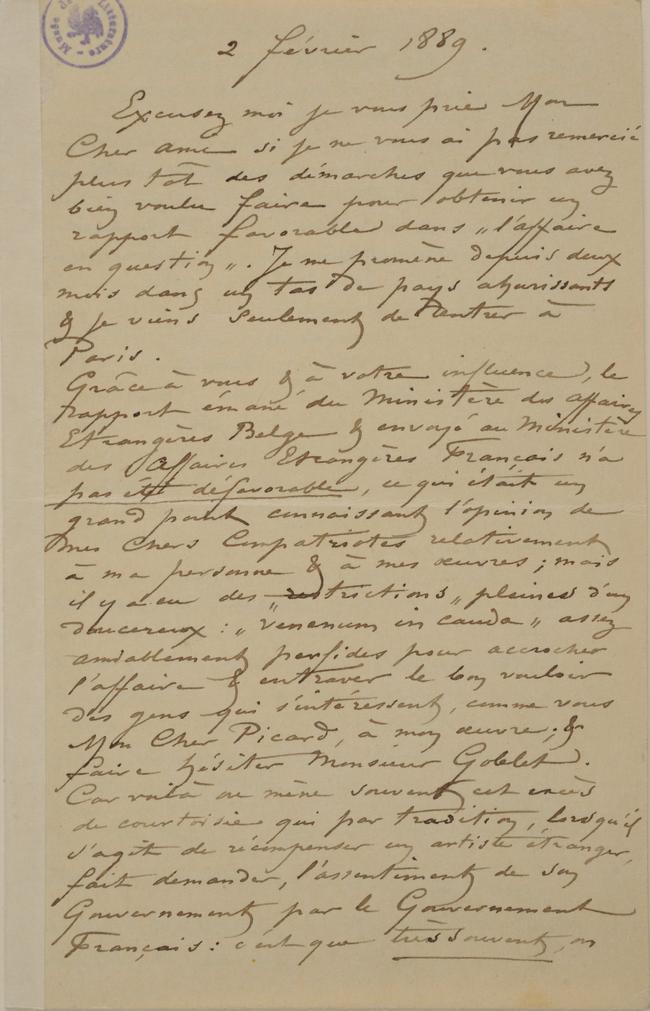 Musée de la Littérature
2 février 1889.
Excusez moi je vous prie Mon
Cher ami si je ne vous ai pas remercié
plus tôt des démarches que vous avez
bien voulu faire pour obtenir un
rapport favorable dans „l'affaire
en question„. Je me promène depuis deux
mois dans un tas de pays ahurissants
& je viens seulement de rentrer à
Paris.
Grâce à vous & à votre influence, le
rapport émané du Ministère des affaires
Etrangères Belge & envoyé au Ministère
des Affaires Etrangères Français n'a
pas été défavorable, ce qui était un
grand point connaissant l'opinion de
mes Chers Compatriotes relativement
à ma personne & à mes œuvres; mais
il y a eu des „restrictions„ pleines d'un
doucereux: „venenum in cauda„ assez
amiablement perfides pour accrocher
l'affaire & entraver le bon vouloir
des gens qui s'intéressent, comme vous
Mon Cher Picard, à mon œuvre; &
faire hésiter Monsieur Goblet.
Car voilà où mène souvent cet excès
de courtoisie qui par tradition, lorsqu'il
s'agit de récompenser un artiste étranger,
fait demander, l'assentiment de son
Gouvernement par le Gouvernement
Français: c'est que très souvent, on